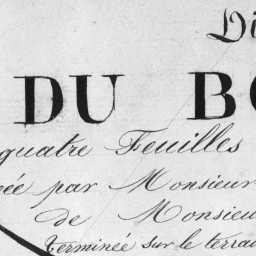 Di
DU BO
quatre Feuilles
ée par Monsieur
de Monsieu
Terminée sur le terrai